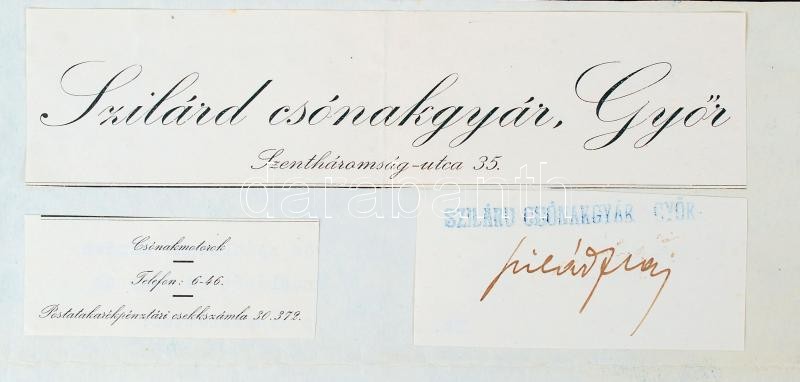 Szilárd csónakgyár, Győr
Szentháromság-utca 35.
darabanth
Csónakmotorok
Telefon: 6-46.
Postatakarékpénztári csekkszámla 30.372.
SZILÁRD CSÓNAKGYÁR GYŐR